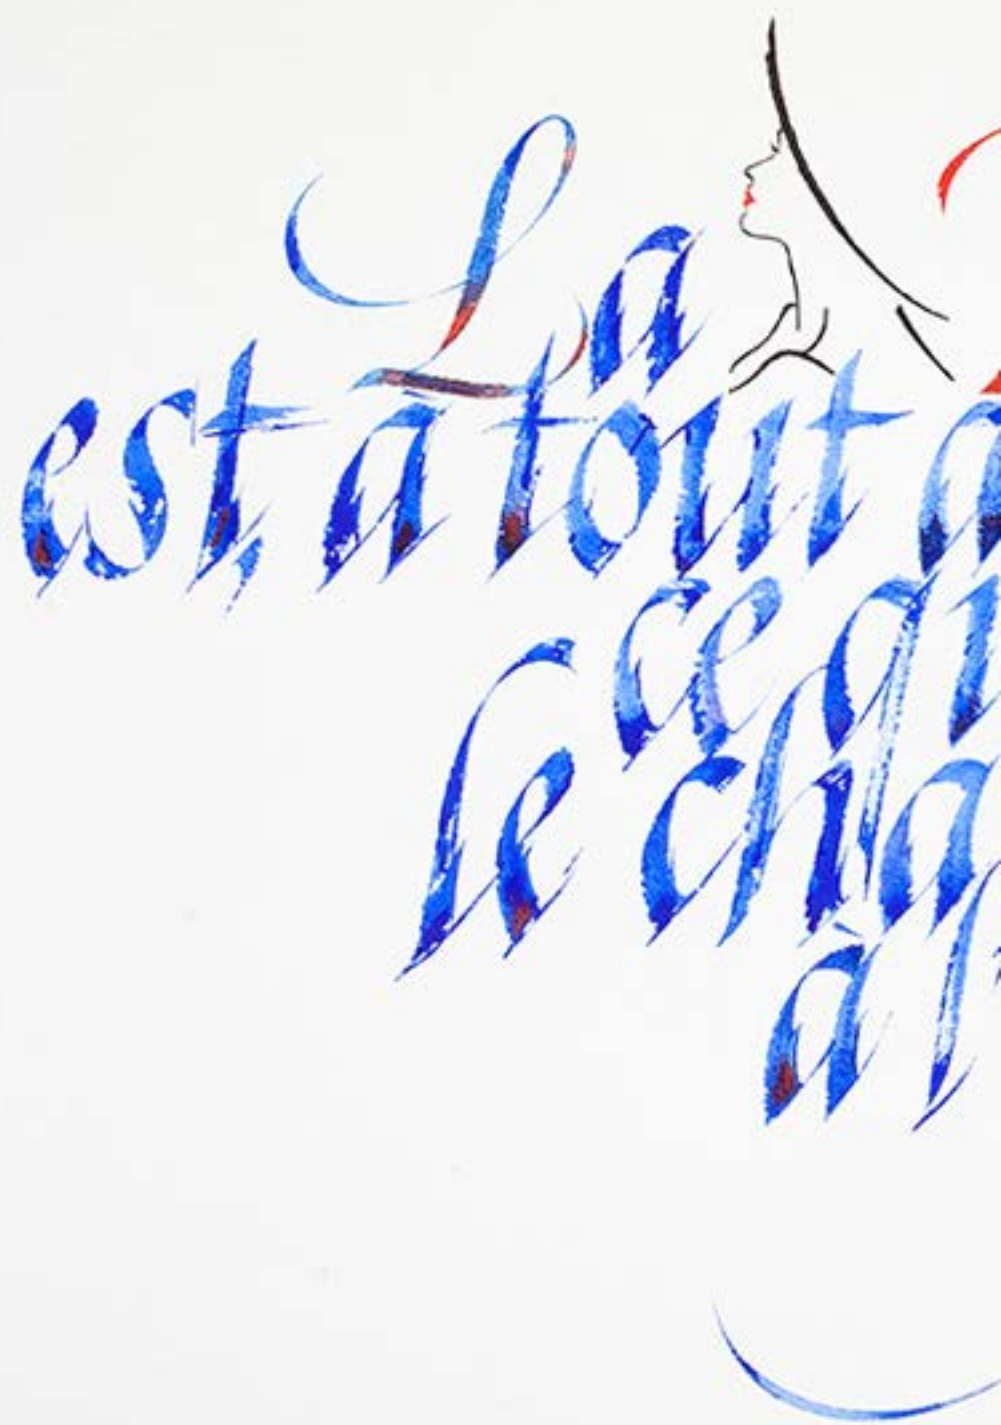 La
est, à tout
ce
le cha
à l